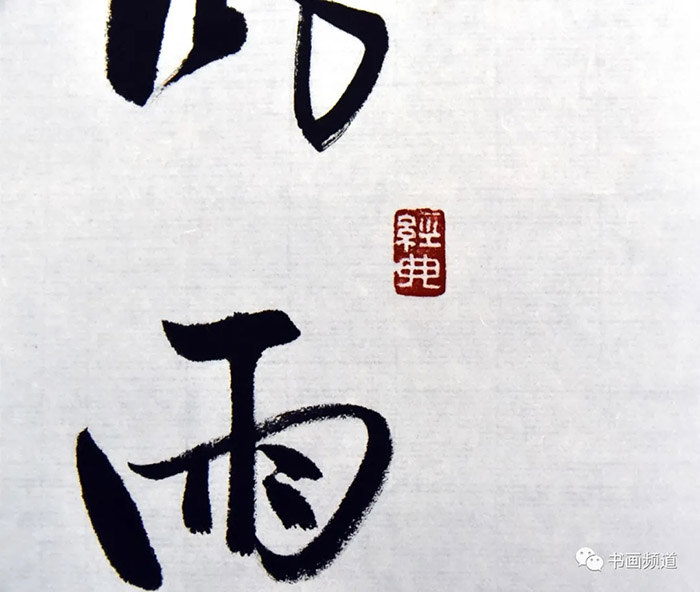 雨
經典
书画频道